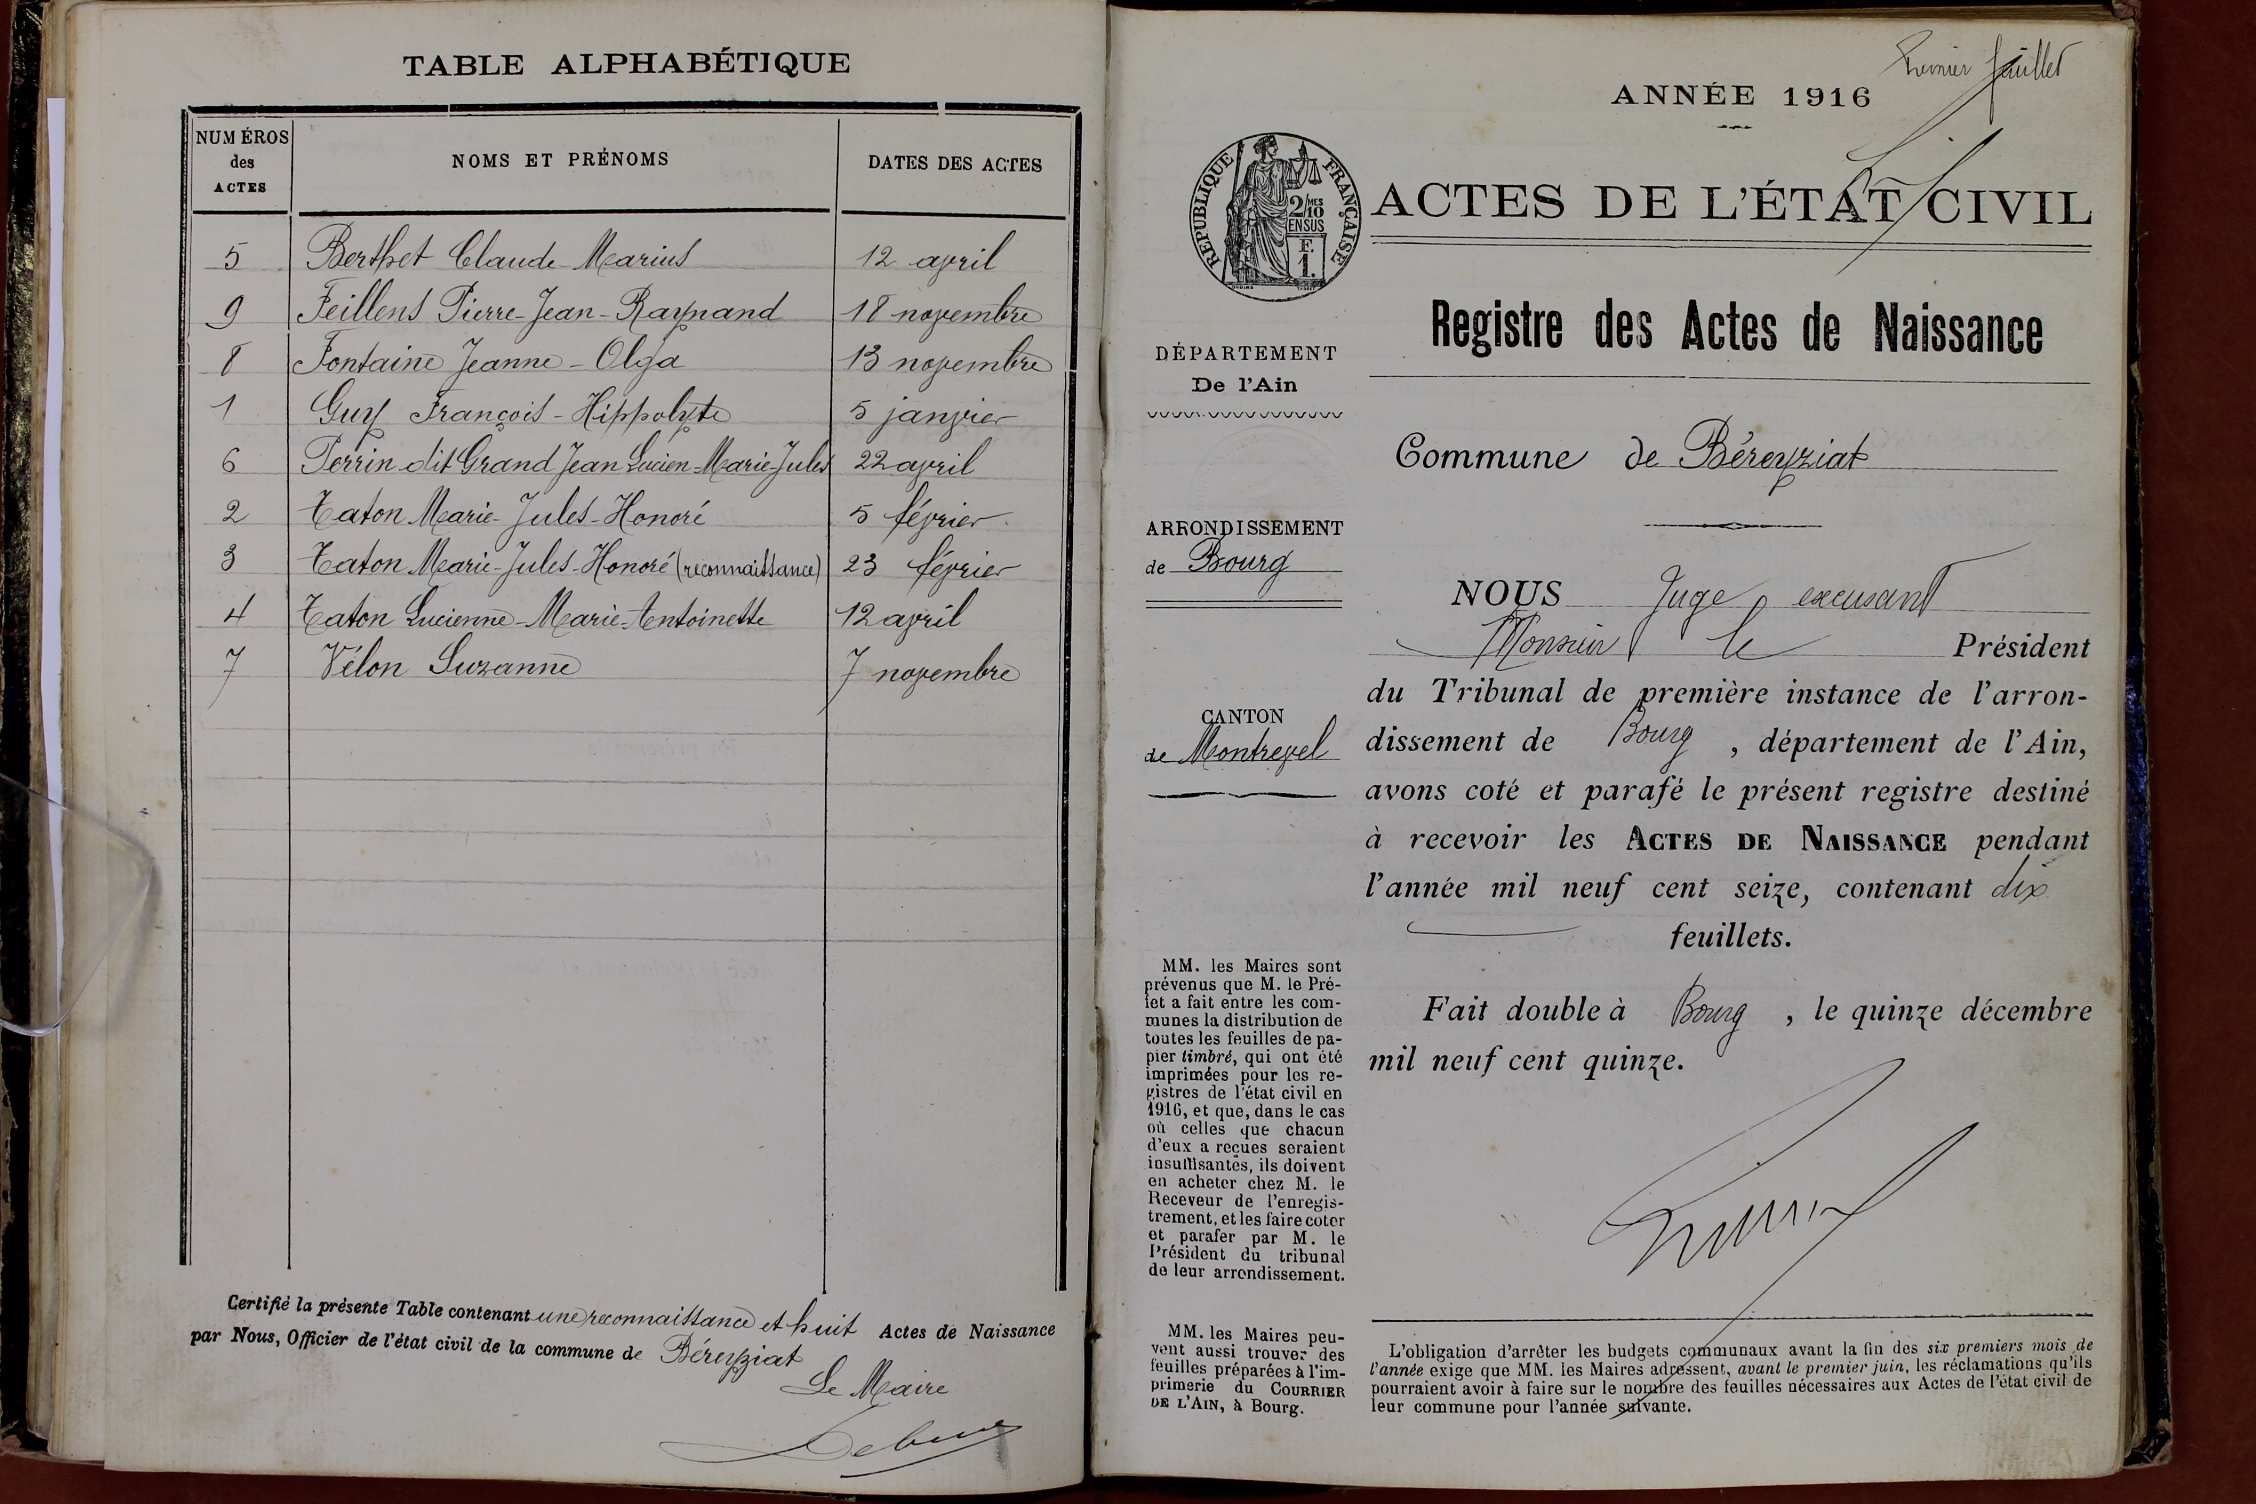 TABLE ALPHABÉTIQUE
NUMÉROS des ACTES
NOMS ET PRÉNOMS
DATES DES ACTES
5 Berthet Claude-Marius 12 avril
9 Feillens Pierre-Jean-Raymand 18 novembre
8 Fontaine Jeanne-Olga 13 novembre
1 Guy François-Hippolyte 5 janvier
6 Perrin dit Grand Jean Lucien-Marie-Jules 22 avril
2 Caton Marie-Jules-Honoré 5 février
3 Caton Marie-Jules-Honoré (reconnaissance) 23 février
4 Caton Lucienne-Marie-Antoinette 12 avril
7 Vélon Suzanne 7 novembre
Certifié la présente Table contenant une reconnaissance et huit Actes de Naissance
par Nous, Officier de l'état civil de la commune de Béreyziat
Le Maire
Premier feuillet
ANNÉE 1916
RÉPUBLIQUE FRANÇAISE
2/10 MES
EN SUS
F.
1.
ACTES DE L'ÉTAT CIVIL
Registre des Actes de Naissance
DÉPARTEMENT
De l'Ain
Commune de Béreyziat
ARRONDISSEMENT
de Bourg
CANTON
de Montrevel
NOUS Juge excusant
Monsieur le Président
du Tribunal de première instance de l'arron-
dissement de Bourg, département de l'Ain,
avons coté et parafé le présent registre destiné
à recevoir les ACTES DE NAISSANCE pendant
l'année mil neuf cent seize, contenant dix
feuillets.
Fait double à Bourg, le quinze décembre
mil neuf cent quinze.
MM. les Maires sont
prévenus que M. le Pré-
fet a fait entre les com-
munes la distribution de
toutes les feuilles de pa-
pier timbré, qui ont été
imprimées pour les re-
gistres de l'état civil en
1916, et que, dans le cas
où celles que chacun
d'eux a reçues seraient
insuffisantes, ils doivent
en acheter chez M. le
Receveur de l'enregis-
trement, et les faire coter
et parafer par M. le
Président du tribunal
de leur arrondissement.
MM. les Maires peu-
vent aussi trouver des
feuilles préparées à l'im-
primerie du COURRIER
DE L'AIN, à Bourg.
L'obligation d'arrêter les budgets communaux avant la fin des six premiers mois de
l'année exige que MM. les Maires adressent, avant le premier juin, les réclamations qu'ils
pourraient avoir à faire sur le nombre des feuilles nécessaires aux Actes de l'état civil de
leur commune pour l'année suivante.